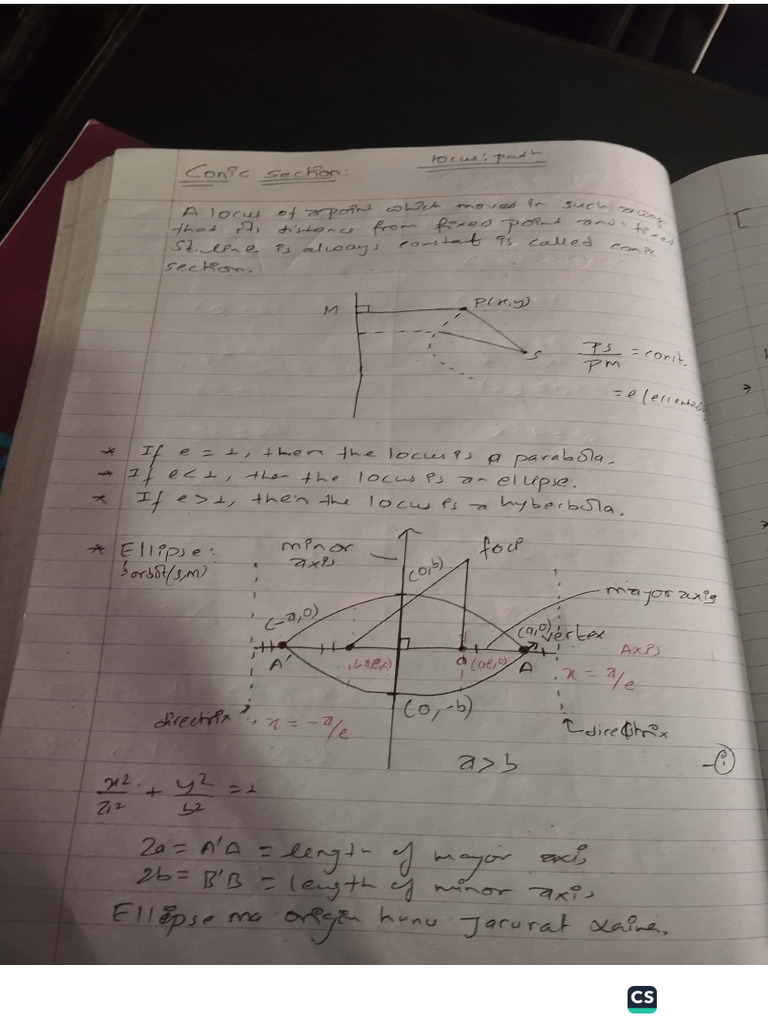 Conic section:
locus: path
A locus of a point which moves in such a way
that it's distance from fixed point and fixed
st. line is always constat is called conic
section.
M
P(x,y)
S
PS/PM = const.
= e
* If e = 1, then the locus is a parabola.
* If e < 1, then the locus is an ellipse.
* If e > 1, then the locus is a hyberbola.
* Ellipse:
minor
axis
foci
(0,b)
major axis
(-a,0)
(a,0)
vertex
Axis
A'
(-ae,0)
(ae,0)
A
x = a/e
directrix
x = -a/e
(0,-b)
directrix
a > b
-(i)
x²/a² + y²/b² = 1
2a = A'A = length of mayor axis
2b = B'B = length of minor axis
Ellipse ma origin hunu Jarurat xaina.
CS